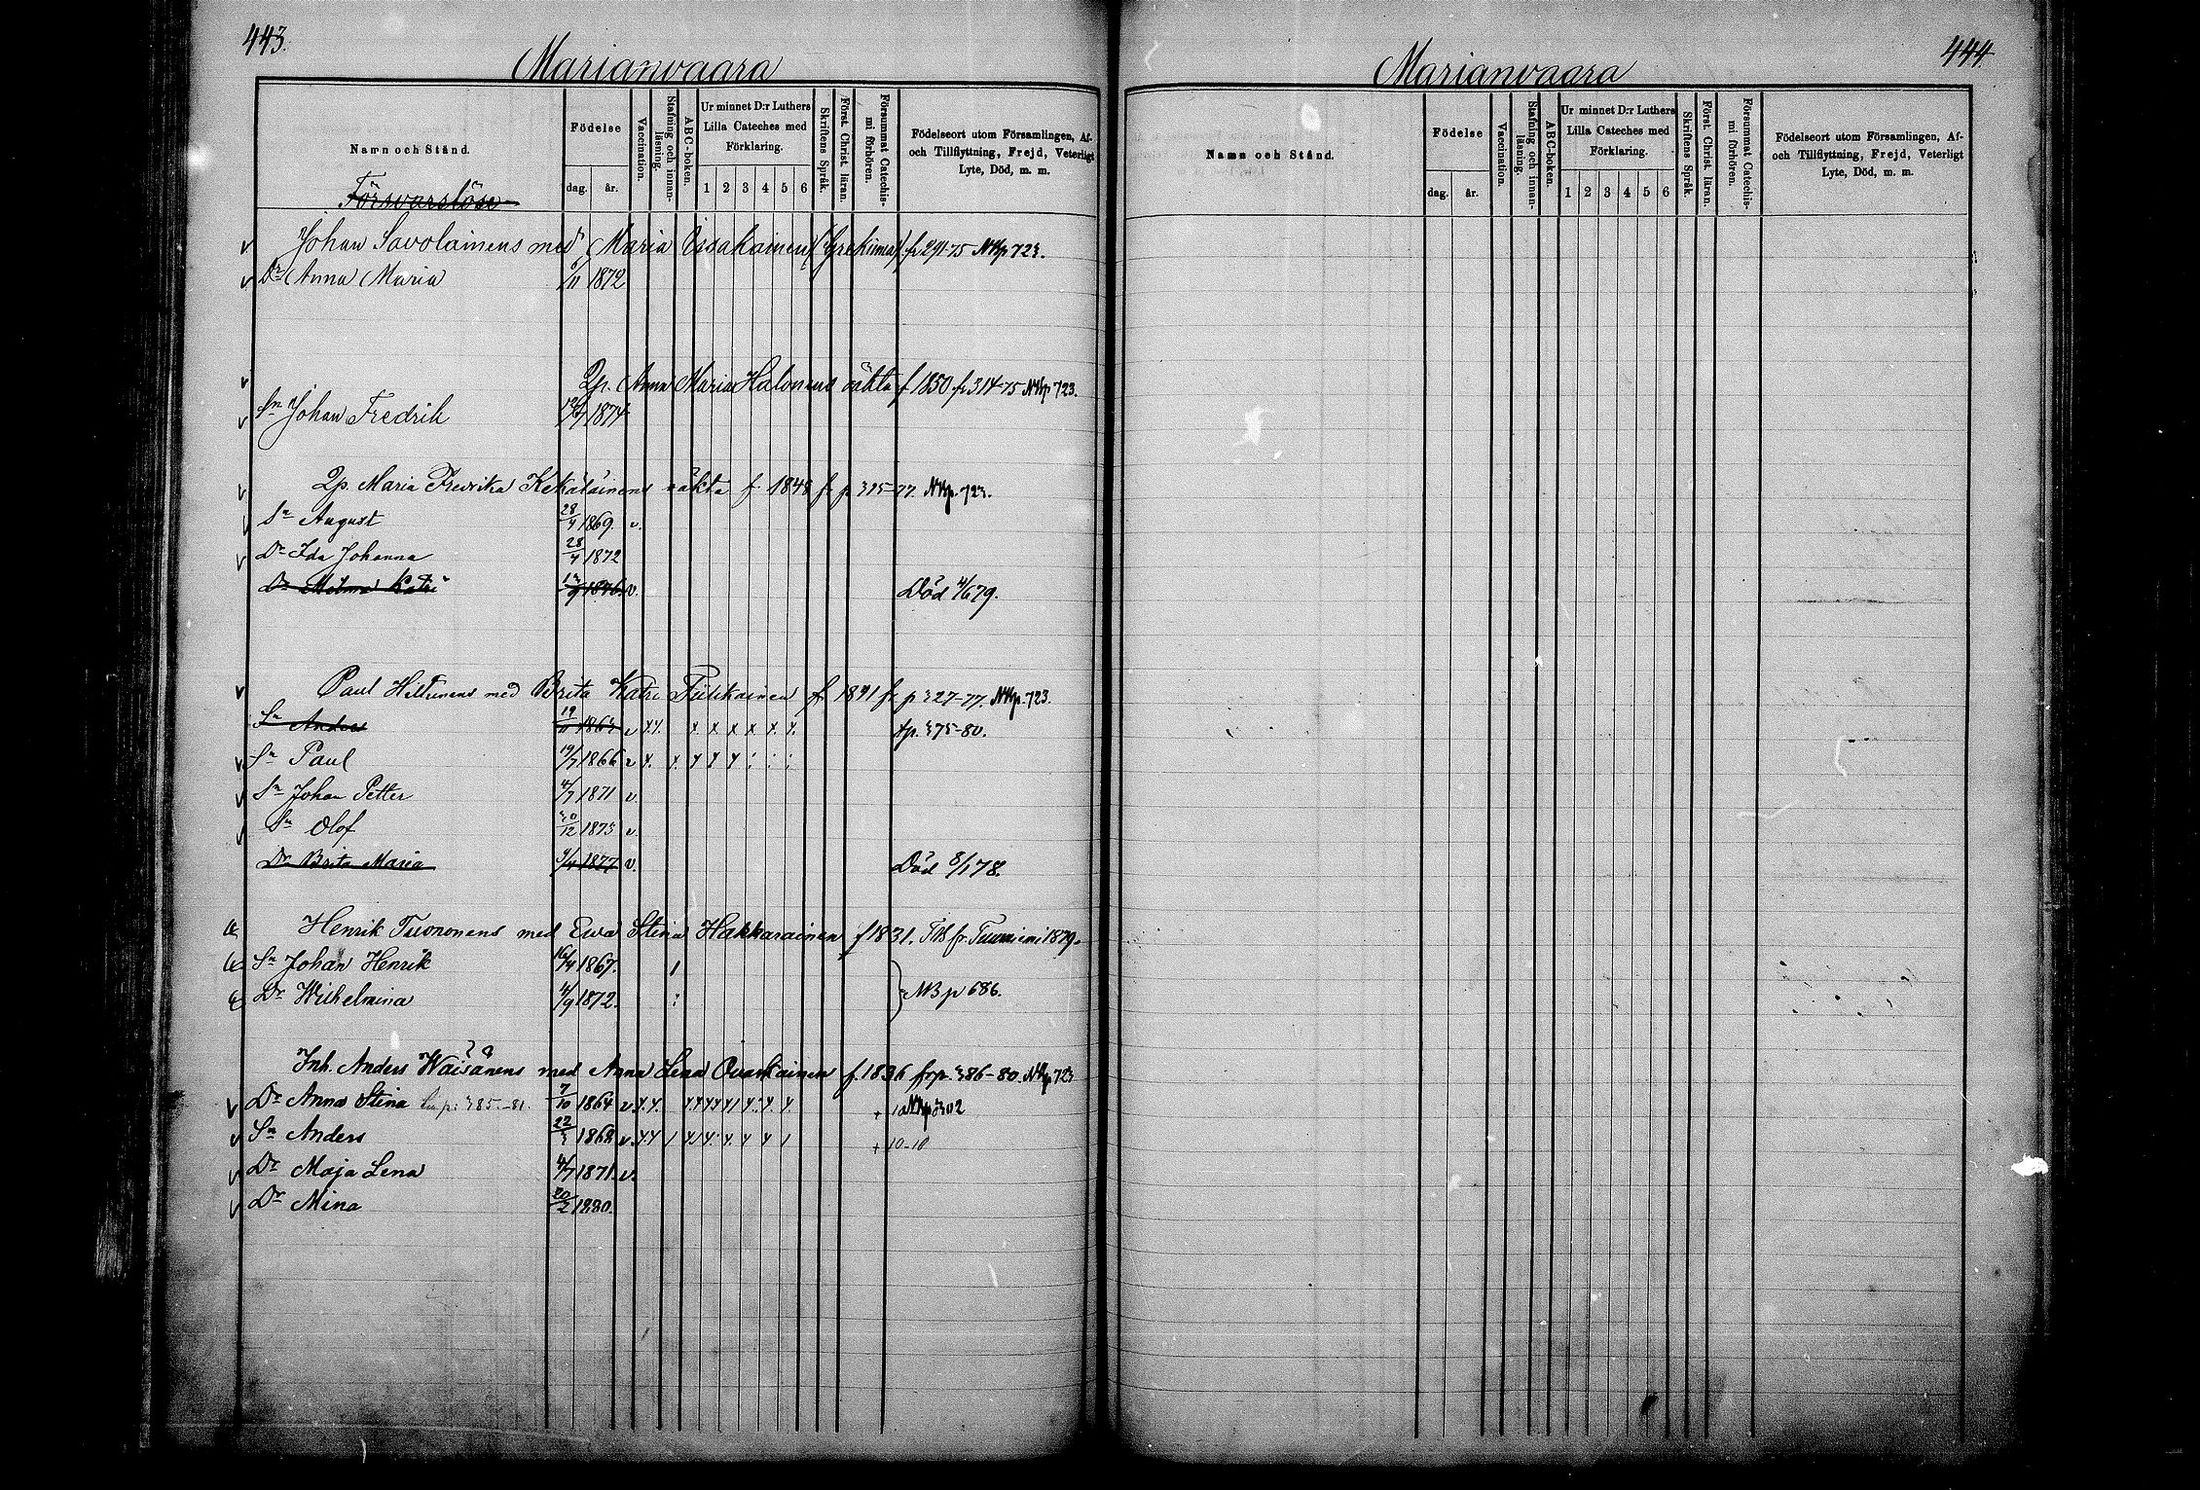 443.
Marianvaara
Namn och Stånd.
Födelse
dag. år.
Vaccination.
Stafning och innan-läsning.
ABC-boken.
Ur minnet D:r Luthers Lilla Cateches med Förklaring.
1 2 3 4 5 6
Skriftens Språk.
Först. Christ. läran.
Försummat Catechis-mi förhören.
Födelseort utom Församlingen, Af-
och Tillflyttning, Frejd, Veterligt
Lyte, Död, m. m.
Försvarslöse
Johan Savolainens med Maria fr 291-75 NKp 723.
Dr Anna Maria 6/11 1872
Anna Maria Halonens oäkta f 1850 fr 314-75 NKp 723.
Sn Johan Fredrik 1874
Maria Fredrika oäkta f. 1848 fr p 315-77. NKp. 723.
Sn August 28/4 1869. v.
Dr Ida Johanna 28/4 1872
Dr Katri v. Död 4/6 79.
Paul Hiltunens med Brita Katri f. 1841 fr p 327-77. NKp. 723.
Sn Anders 19/11 v x x x x x x x x fp. 375-80.
Sn Paul 19/7 1866 v
Sn Johan Petter 4/7 1871 v.
Sn Olof 30/12 1873 v.
Dr Brita Maria 9/4 1877 v. Död 8/1 78.
Henrik Tuononens med Ewa Stina Hakkarainen f 1831. fr. 1879.
Sn Johan Henrik 16/4 1867. 1
Dr Wilhelmina 4/9 1872. NB p 686.
Inh. Anders Waisänens med Anna Lena f. 1836 fr p. 386-80. NKp 723
Dr Anna Stina 385-81. 7/10 1864 v
Sn Anders 22/3 1868 v + 10-10
Dr Maja Lena 4/7 1871. v.
Dr Mina 20/2 1880.
444.
Marianvaara
Namn och Stånd.
Födelse
dag. år.
Vaccination.
Stafning och innan-läsning.
ABC-boken.
Ur minnet D:r Luthers Lilla Cateches med Förklaring.
1 2 3 4 5 6
Skriftens Språk.
Först. Christ. läran.
Försummat Catechis-mi förhören.
Födelseort utom Församlingen, Af-
och Tillflyttning, Frejd, Veterligt
Lyte, Död, m. m.